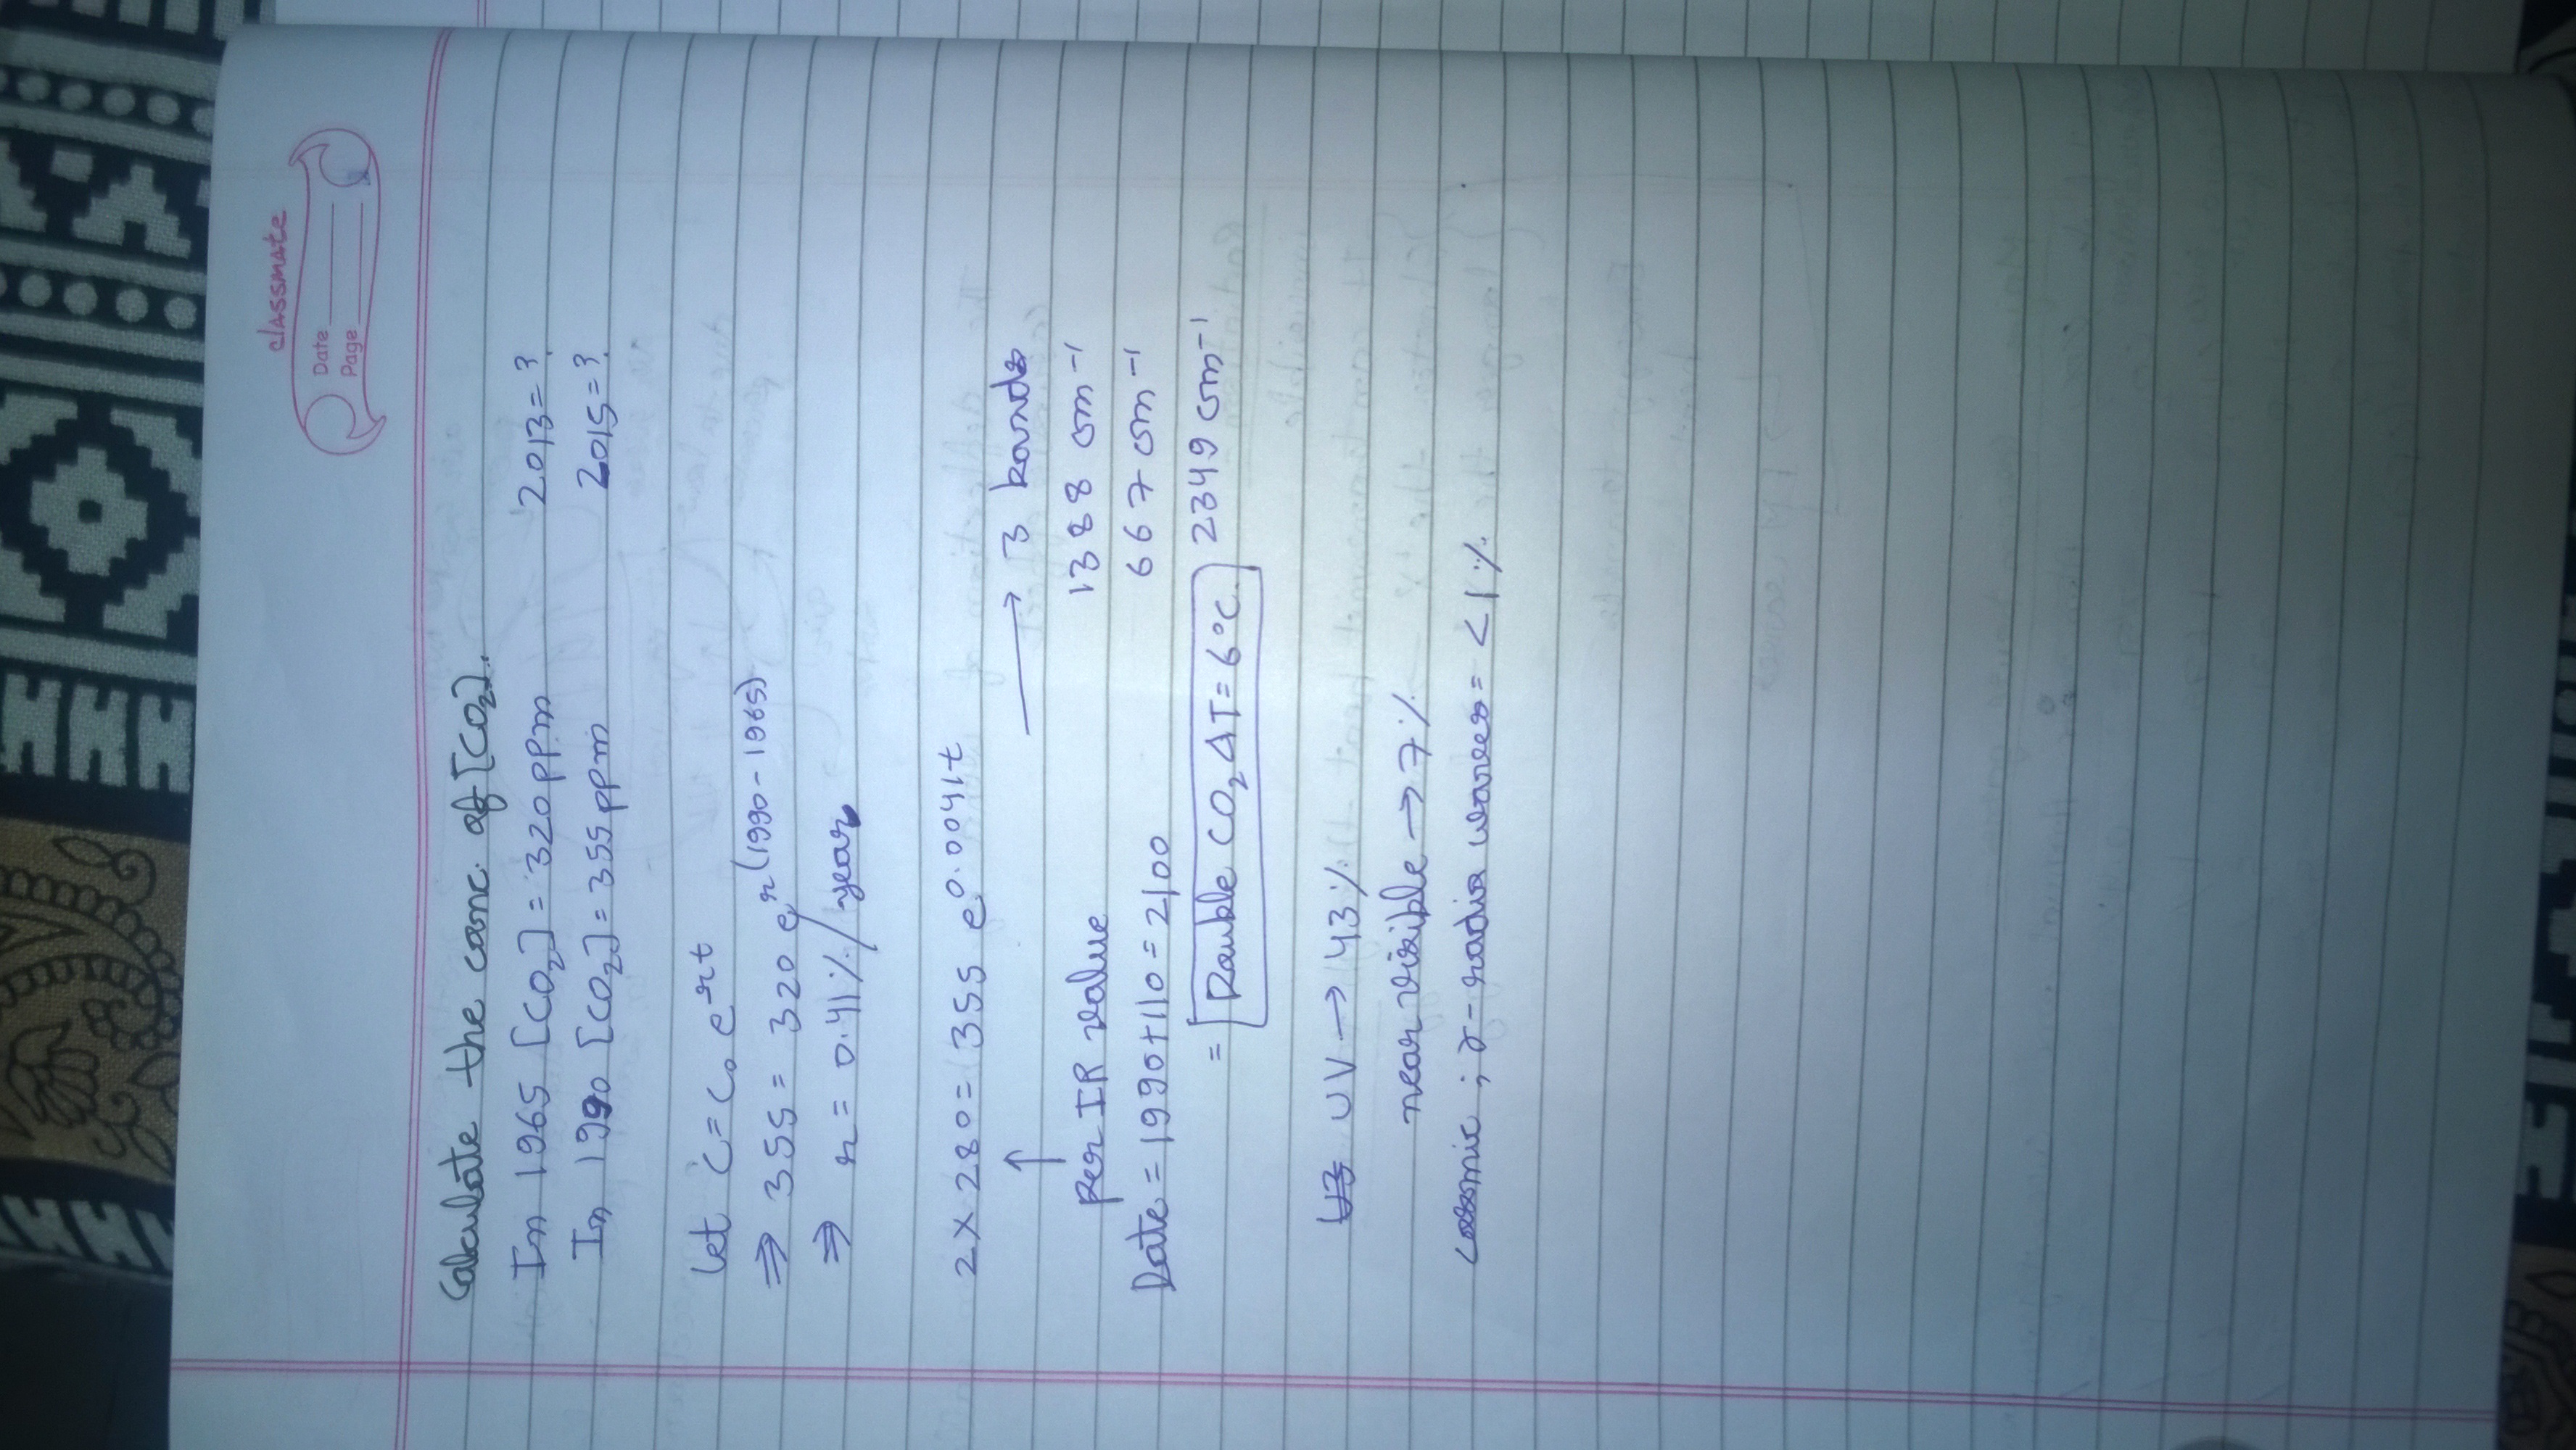 classmate
Date
Page
Calculate the conc. of [CO₂].
In 1965 [CO₂] = 320 ppm 2013 = ?
In 1990 [CO₂] = 355 ppm 2015 = ?
Let C = C₀ e^-rt
⇒ 355 = 320 e^r(1990-1965)
⇒ r = 0.41%/year
2 × 280 = 355 e^0.0041t
↑ → 3 bands
per IR value 1388 cm⁻¹
Date = 1990+110 = 2100 667 cm⁻¹
= Double CO₂ ΔT = 6°C. 2349 cm⁻¹
UV → 43%
near visible → 7%
Cosmic ; γ-radio waves = <1%